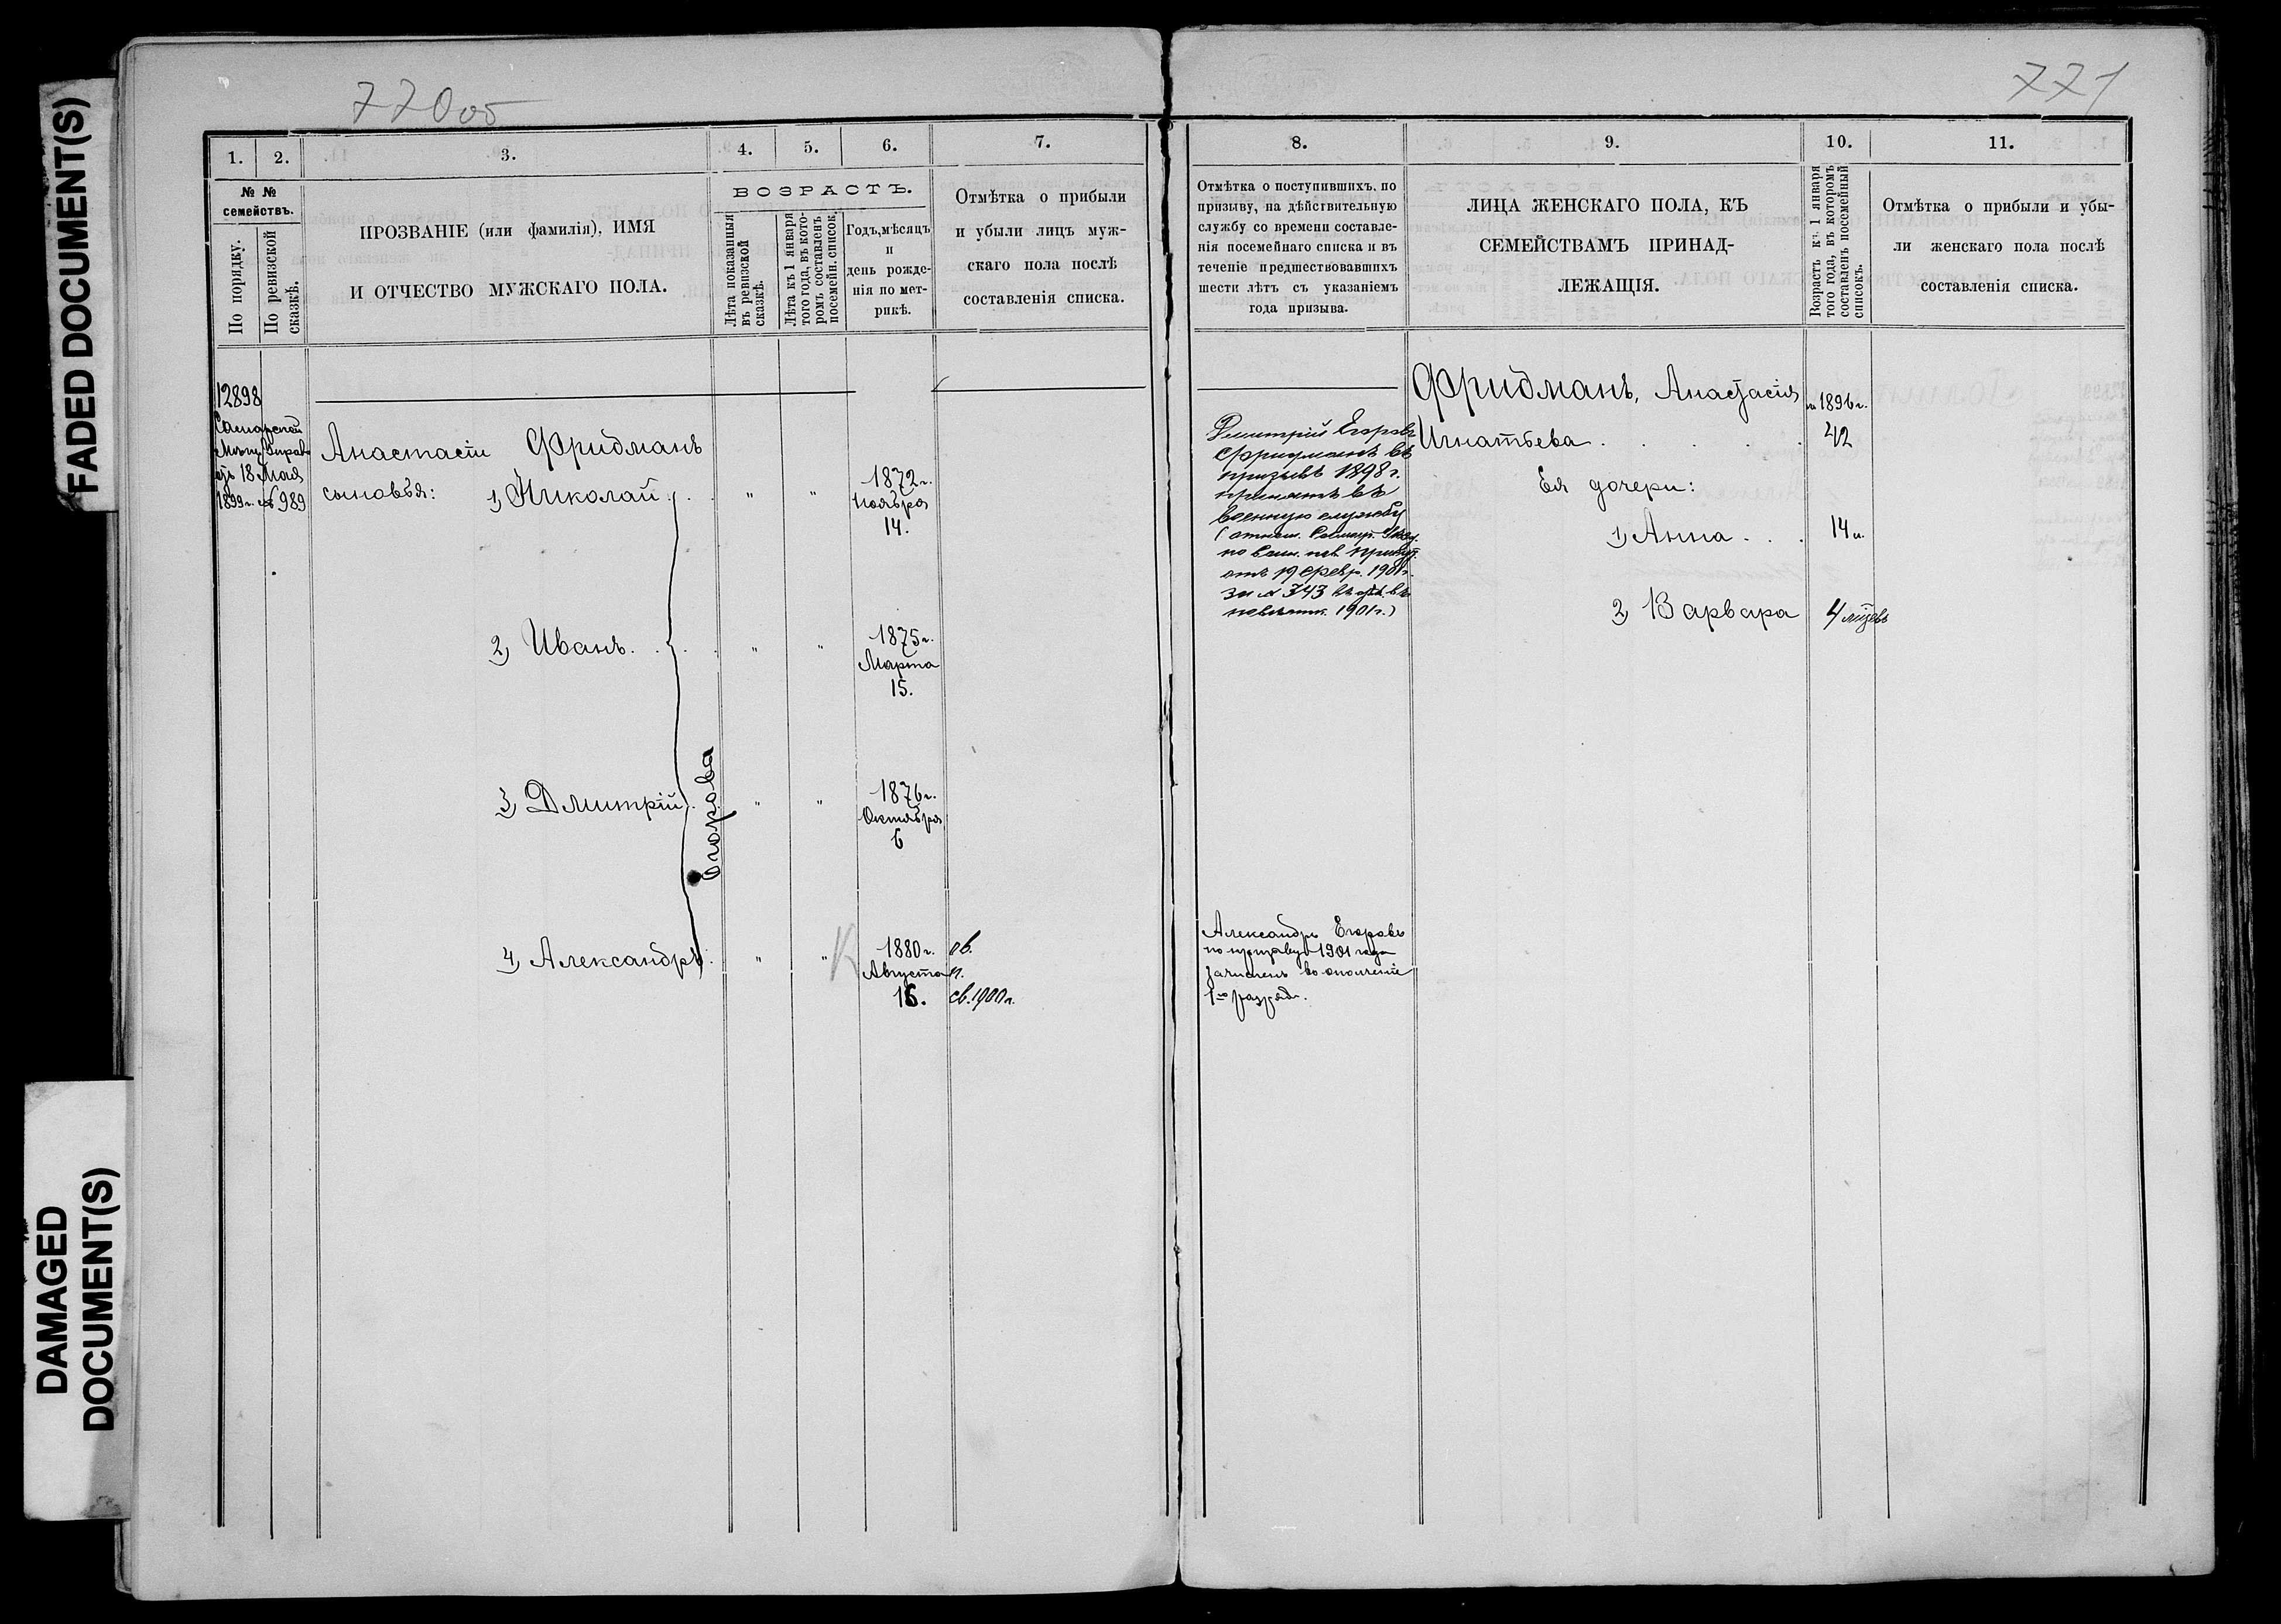 FADED DOCUMENT(S)
DAMAGED
DOCUMENT(S)
770об
1.
2.
3.
4.
5.
6.
7.
№ №
семействъ.
По порядку.
По ревизской
сказкѣ.
ПРОЗВАНІЕ (или фамилія), ИМЯ
И ОТЧЕСТВО МУЖСКАГО ПОЛА.
ВОЗРАСТЪ.
Лѣта показанныя
въ ревизской
сказкѣ.
Лѣта къ 1 января
того года, въ кото-
ромъ составленъ
посемейн. списокъ.
Годъ, мѣсяцъ
и
день рожде-
нія по мет-
рикѣ.
Отмѣтка о прибыли
и убыли лицъ муж-
скаго пола послѣ
составленія списка.
12898
Самарской
Мѣщ. Управ
отъ 18 Мая
1899 г. № 989
Анастасіи Фридманъ
сыновья: 1) Николай . . " "
1872 г.
Ноября
14.
2) Иванъ . . . " "
1875 г.
Марта
15.
3) Дмитрій . " "
1876 г.
Октября
6
Егорова
4) Александръ . " "
1880 г.
Августа
16.
ов.
п.
св. 1900 г.
771
8.
9.
10.
11.
Отмѣтка о поступившихъ, по
призыву, на дѣйствительную
службу со времени составле-
нія посемейнаго списка и въ
теченіе предшествовавшихъ
шести лѣтъ съ указаніемъ
года призыва.
ЛИЦА ЖЕНСКАГО ПОЛА, КЪ
СЕМЕЙСТВАМЪ ПРИНАД-
ЛЕЖАЩІЯ.
Возрастъ къ 1 января
того года, въ которомъ
составленъ посемейный
списокъ.
Отмѣтка о прибыли и убы-
ли женскаго пола послѣ
составленія списка.
Дмитрій Егоровъ
Фридманъ въ
призывъ 1898 г.
принятъ въ
военную службу
(отнош. Самар. Уѣзд.
по воин. пов. Присут.
отъ 19 Февр. 1901 г.
за № 343
1901 г.)
Александръ Егоровъ
по призыву 1901 года
зачисленъ въ ополченіе
1го разряда.
Фридманъ, Анастасія
Игнатьева . . . . .
на 1896 г.
42
Ея дочери:
1) Анна . . . 14 л.
2) Варвара 4 мѣс.